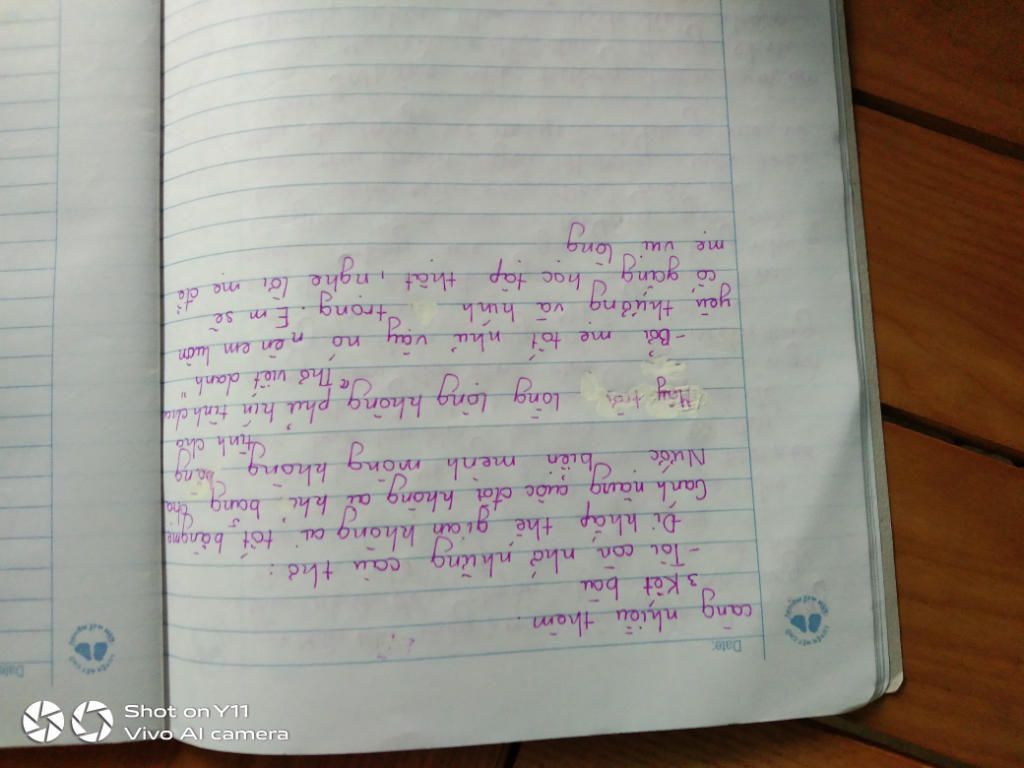 Date:
càng nhiều thêm.
3 Kết bài
- Tôi còn nhớ những câu thơ:
Đi khắp thế gian không ai tốt bằng mẹ
Gánh nặng cuộc đời không ai khổ bằng cha
Nước biển mênh mông không
tình cha
lòng lồng không phủ kín tình cha
"Thơ việt danh"
- Bởi mẹ tốt như vậy nó nên em luôn
yêu thương và kính trọng. Em sẽ
cố gắng học tập thật, nghe lời mẹ để
mẹ vui lòng
Date:
Shot on Y11
Vivo AI camera